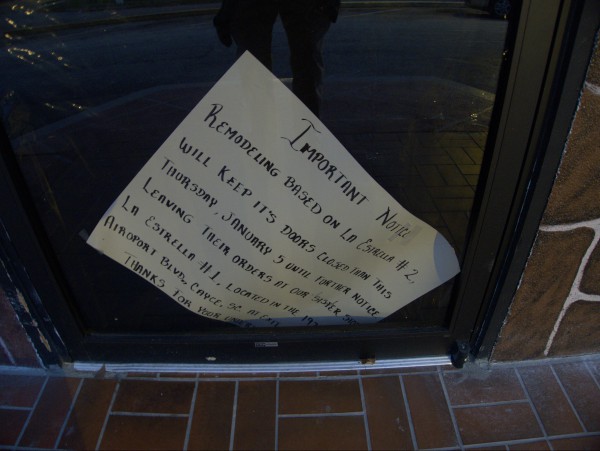 Important Notice
Remodeling based on La Estrella #2,
will keep its doors closed than this
Thursday, January 5 until further notice
Leaving their orders at our sister
La Estrella #1, located in the
Airoport Blvd, Cayce, SC. at
Thanks for your